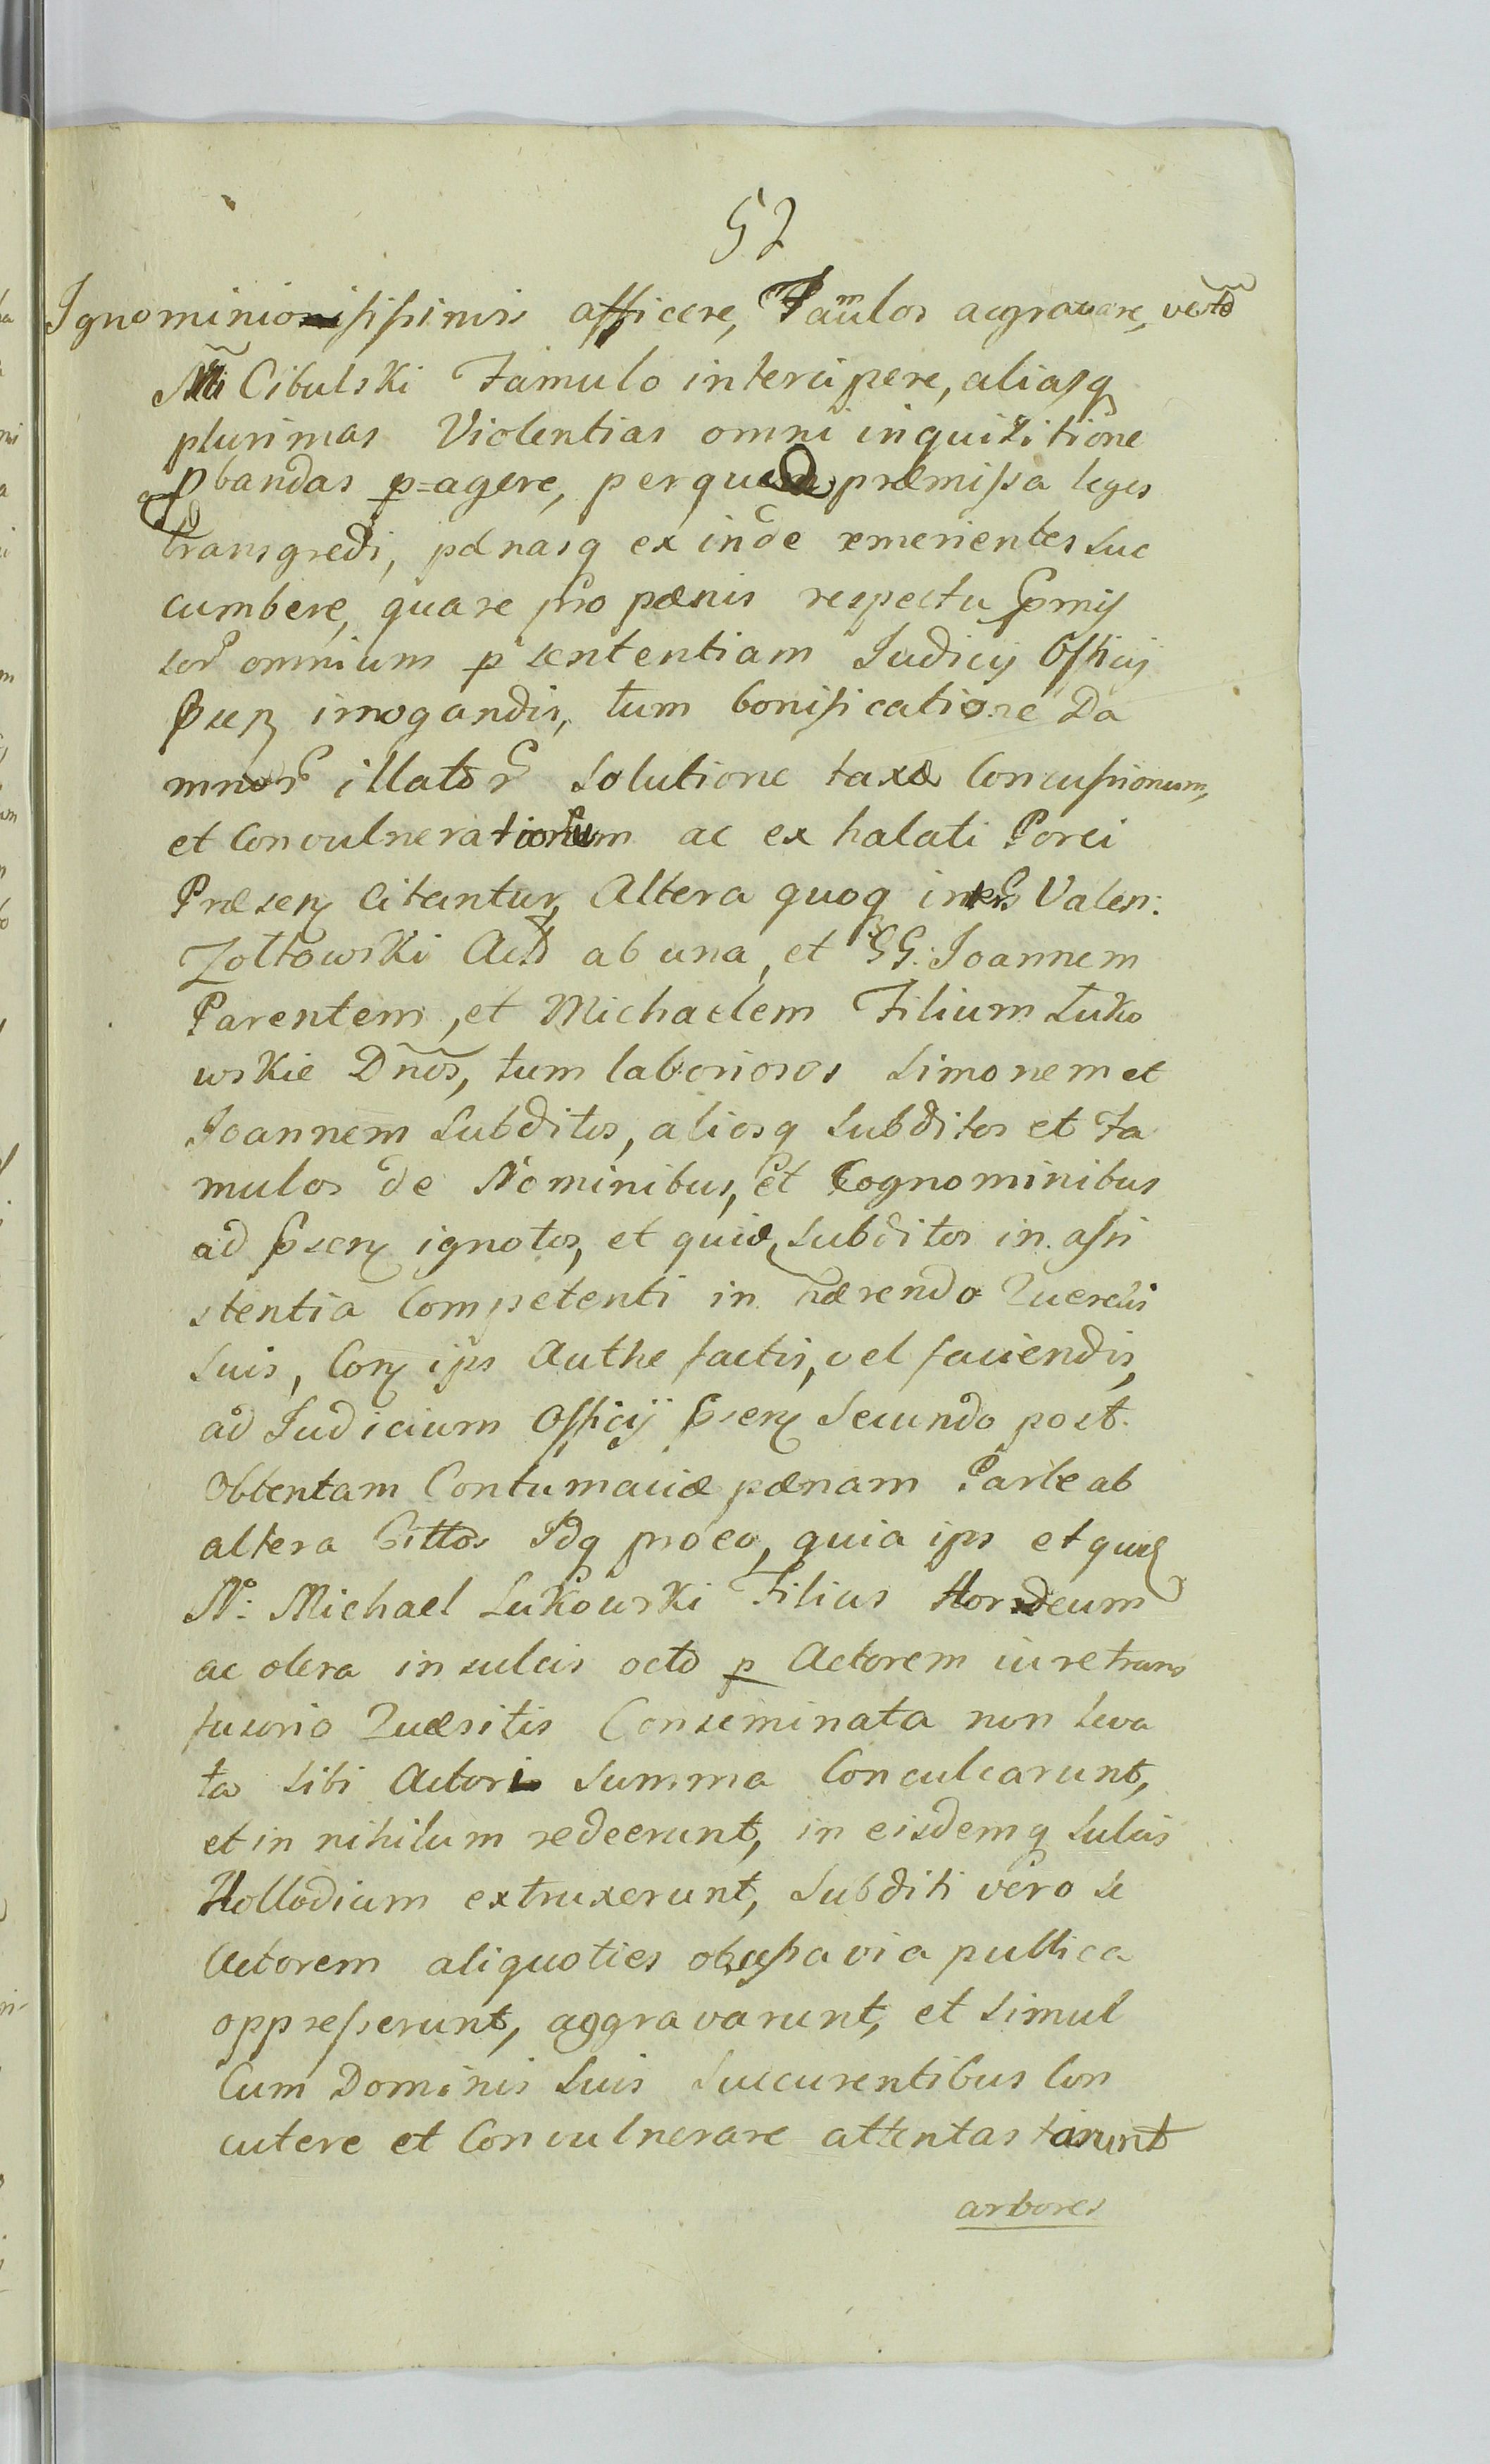 52
Ignominiosissimis afficere, Famulos aggravare, 
Cibulski Famulo intercipere, aliasq
plurimas Violentias omni inquisitione
pbandas p=agere, perque præmissa leges
transgredi, pænasq ex inde emerientes suc
cumbere, quare pro pænis respectu præmis
sor omnium p sententiam Judicij Officij
Præsen irrogandis, tum bonificatione Da
mnor illator solutione taxæ Concussionum,
et Convulnerationum ac ex halati Porci
Præsen Citantur, Altera quoq inter Valen:
Zołtowski Act ab una, et GG. Joannem
Parentem, et Michaelem Filium Luko
wskie Dnos, tum laboriosos Simonem et
Joannem Subditos, aliosq Subditos et Fa
mulos de Nominibus, et Cognominibus
ad præsen ignotos, et quid Subditos in assi
stentia Competenti in hærendo Querelis
suis, Cor ips Authe factis, vel faciendis,
ad Judicium Officij præsen Secundo post
Obtentam Contumaciæ pænam Parte ab
altera Cittos Idq pro eo, quia ips et quid
N: Michael Lukowski Filius Hordeum
ac olera in sulcis octo p Actorem iure trans
fusorio Quæsitis Conseminata non leva
ta sibi Actori summa Conculcarunt,
et in nihilum redeerunt, in eisdemq sulcis
Hollodium extruxerunt, Subditi vero se
Actorem aliquoties obsessa via publica
oppresserunt, aggravarunt, et simul
Cum Dominis suis Succurentibus Con
cutere et Convulnerare attentas tarunt
arbores